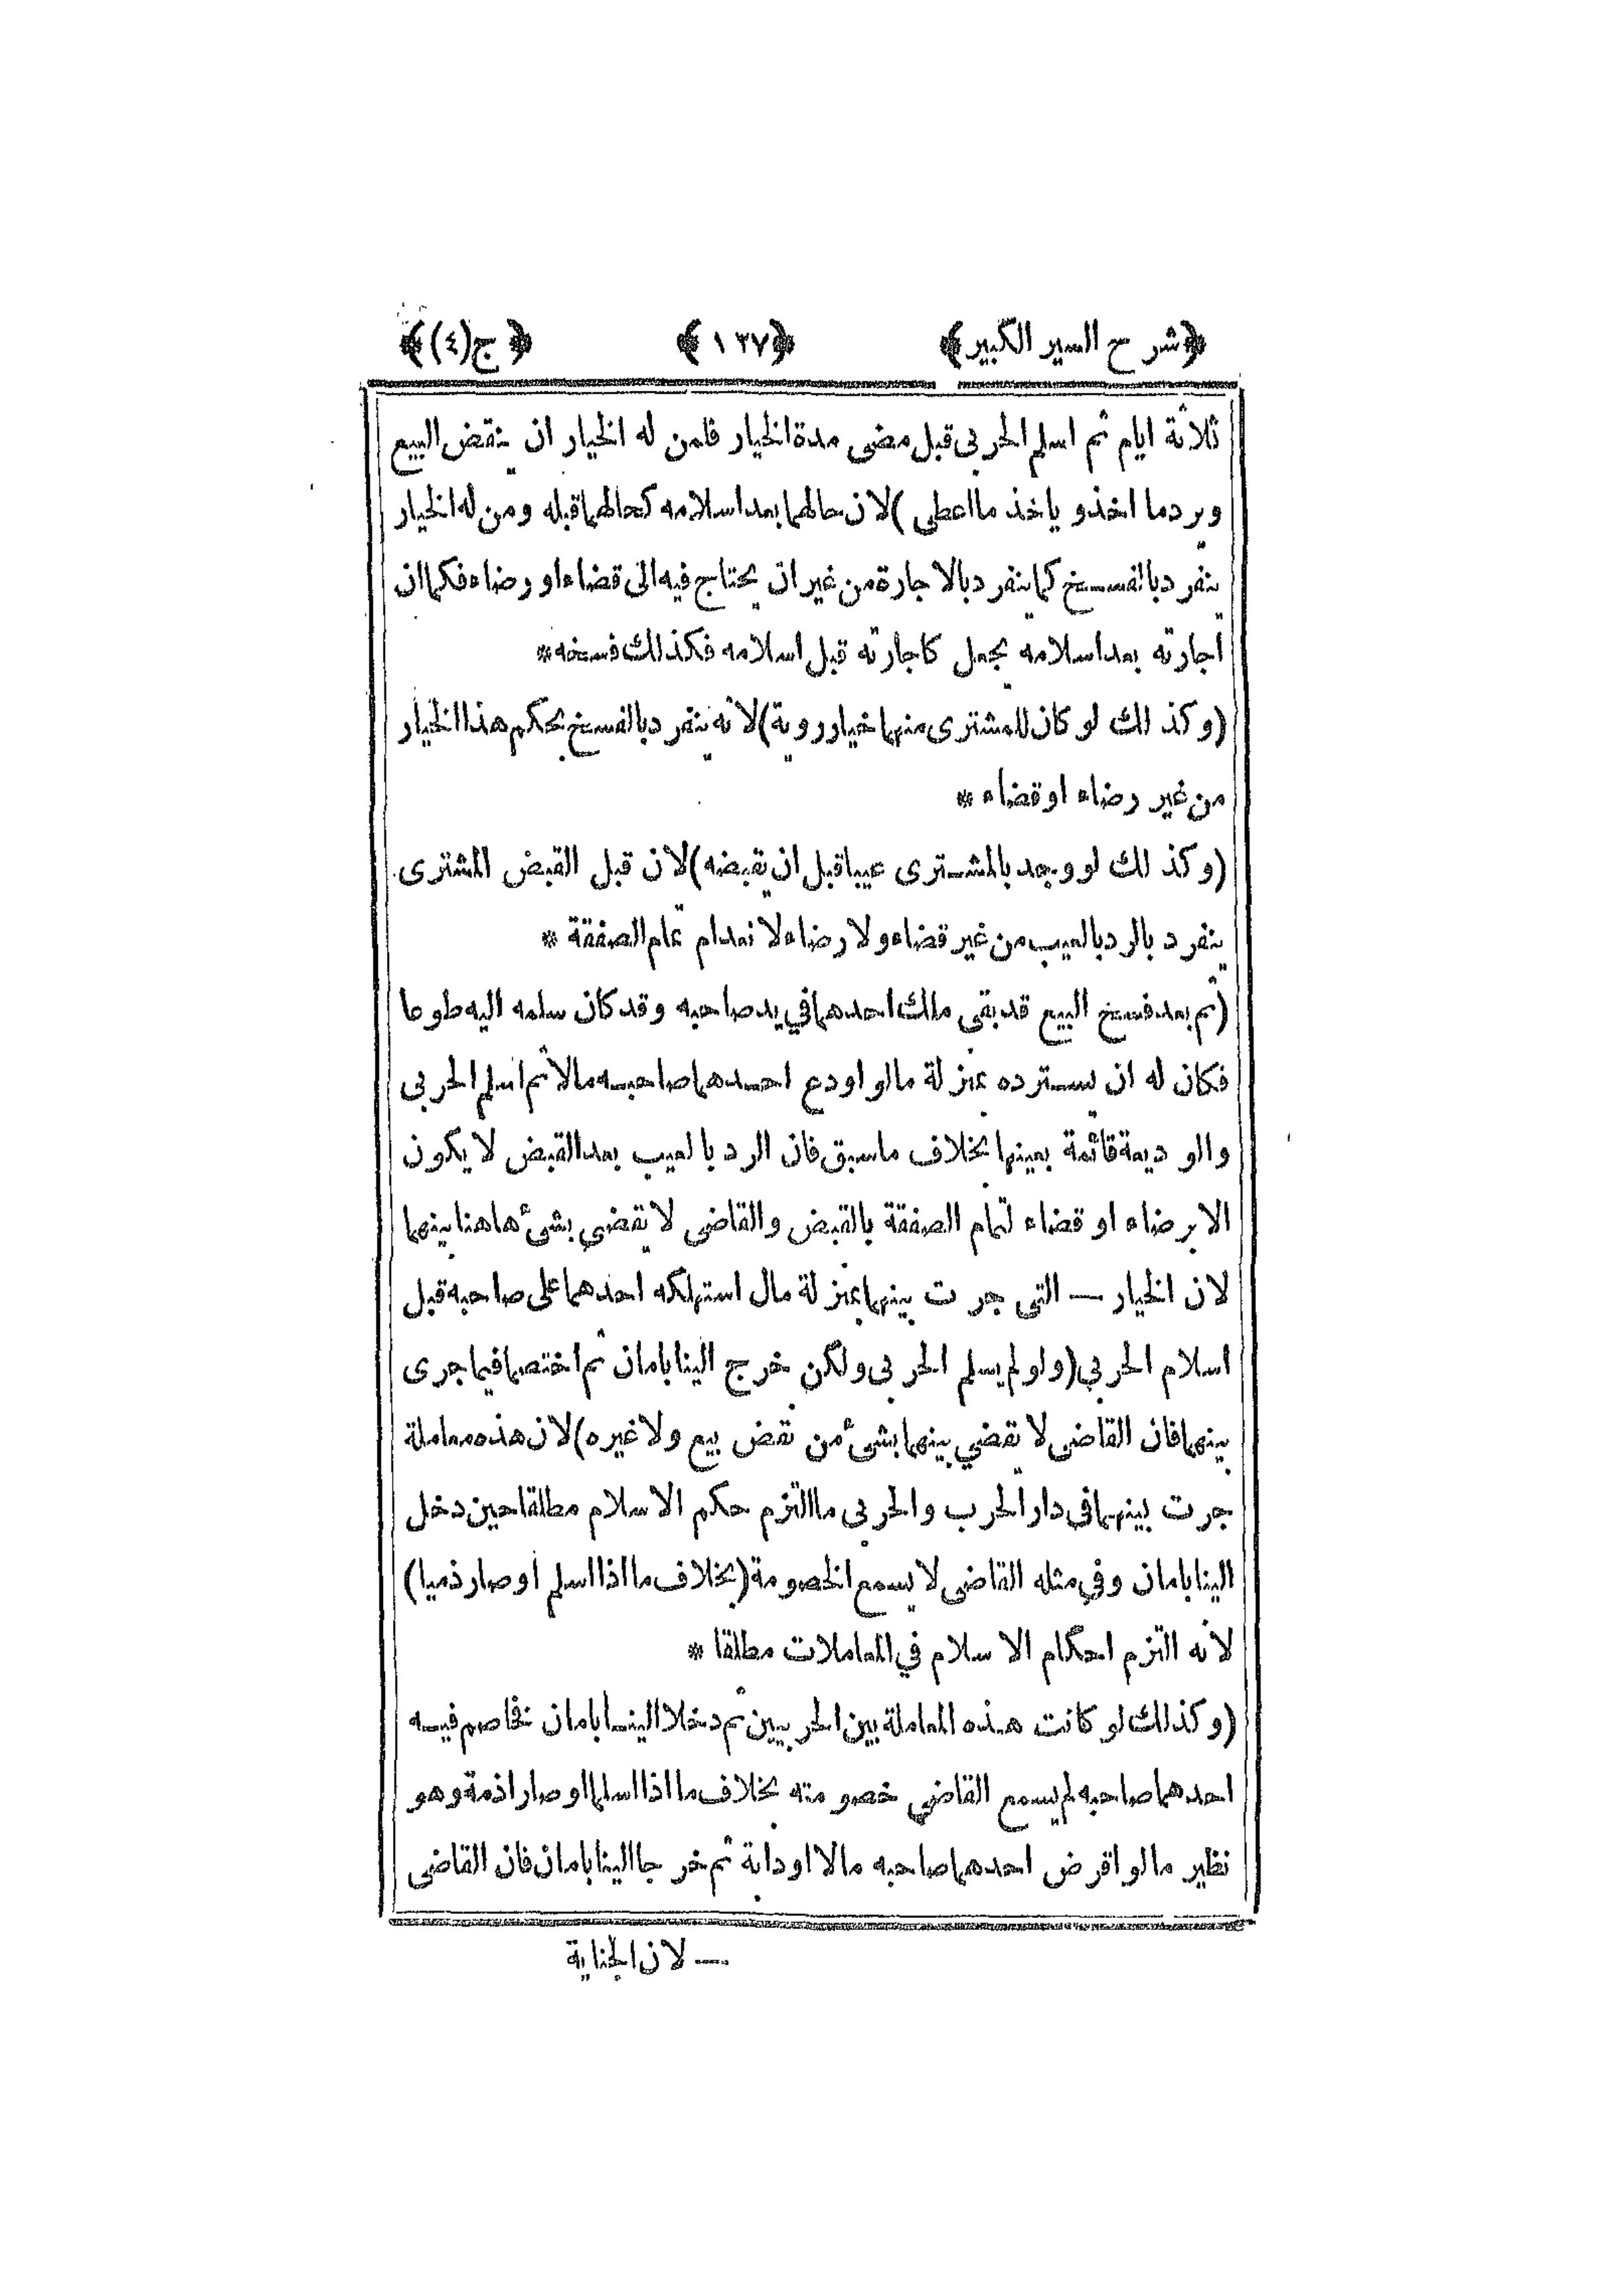 ﴿شرح السير الكبير﴾ ﴿١٣٧﴾ ﴿ج(٤)﴾
ثلاثة ايام ثم اسلم الحربى قبل مضى مدة الخيار فلمن له الخيار ان ينقض البيع
ويرد ما اخذ و ياخذ ما اعطى )لان حالهما بعد اسلامه كحالهما قبله ومن له الخيار
ينفرد بالفسخ كما ينفرد بالاجارة من غير ان يحتاج فيه الى قضاء او رضاء فكما ان
اجارته بعد اسلامه يجعل كاجارته قبل اسلامه فكذلك فسخه*
(وكذلك لو كان للمشترى منهما خيار روية)لانه ينفرد بالفسخ بحكم هذا الخيار
من غير رضاء او قضاء *
(وكذلك لو وجد بالمشترى عيبا قبل ان يقبضه)لان قبل القبض المشترى
ينفرد بالرد بالعيب من غير قضاء ولا رضاء لانعدام تمام الصفقة *
(ثم بعد فسخ البيع قد بقى ملك احدهما في يد صاحبه وقد كان سلمه اليه طوعا
فكان له ان يسترده بمنزلة مالو اودع احدهما صاحبه مالا ثم اسلم الحربى
والوديعة قائمة بعينها بخلاف ما سبق فان الرد بالعيب بعد القبض لا يكون
الا برضاء او قضاء لتمام الصفقة بالقبض والقاضى لا يقضي بشئ هاهنا بينهما
لان الخيار — التى جرت بينهما بمنزلة مال استهلكه احدهما على صاحبه قبل
اسلام الحربي(ولو لم يسلم الحربى ولكن خرج الينا بامان ثم اختصما فيما جرى
بينهما فان القاضى لا يقضي بينهما بشئ من نقض بيع ولا غيره)لان هذه معاملة
جرت بينهما فى دار الحرب والحربى ما التزم حكم الاسلام مطلقا حين دخل
الينا بامان وفي مثله القاضى لا يسمع الخصومة(بخلاف ما اذا اسلم او صار ذميا)
لانه التزم احكام الاسلام في المعاملات مطلقا *
(وكذلك لو كانت هذه المعاملة بين الحربيين ثم دخلا الينا بامان فخاصم فيه
احدهما صاحبه لم يسمع القاضي خصومته بخلاف ما اذا اسلما او صارا ذمة وهو
نظير ما لو اقرض احدهما صاحبه مالا او دابة ثم خرجا الينا بامان فان القاضى
— لان الجناية